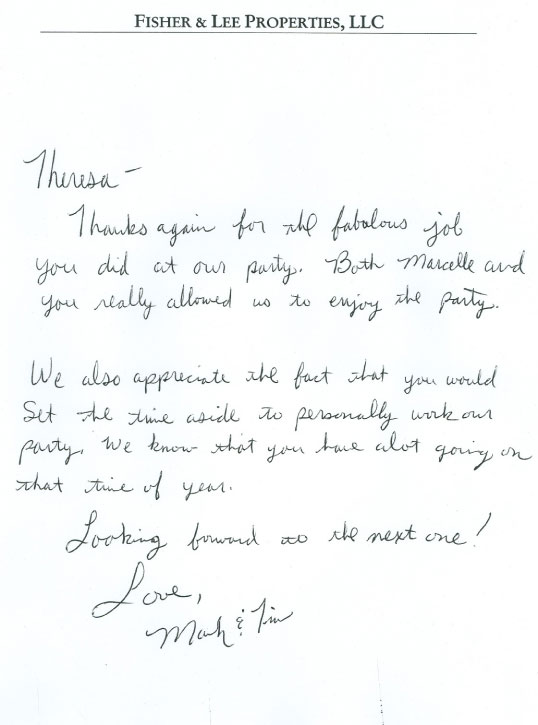 FISHER & LEE PROPERTIES, LLC
Theresa –
Thanks again for the fabulous job
you did at our party. Both Marcelle and
you really allowed us to enjoy the party.
We also appreciate the fact that you would
Set the time aside to personally work our
party. We know that you have alot going on
that time of year.
Looking forward to the next one!
Love,
Mark & Tim